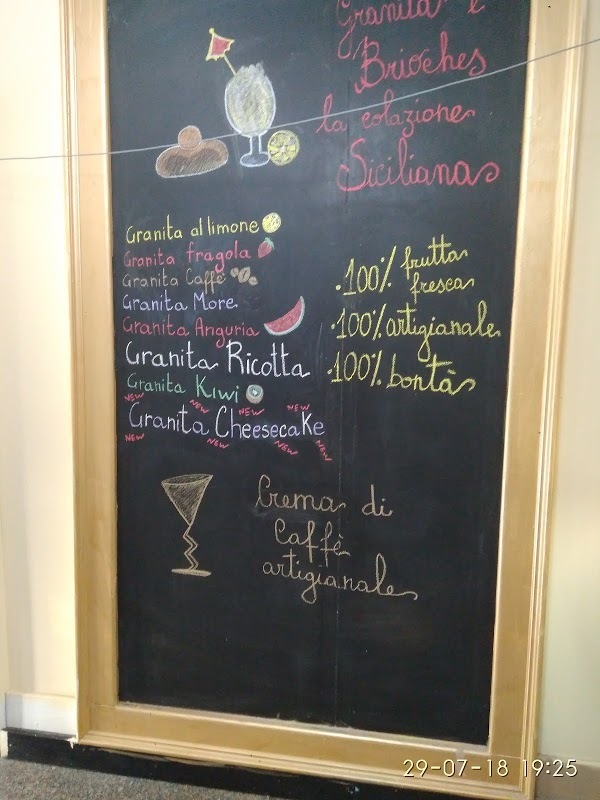 Granita e
Brioches
la colazione
Siciliana
Granita al limone
Granita fragola
Granita Caffè
Granita More
Granita Anguria
Granita Ricotta
Granita Kiwi
NEW NEW NEW NEW
Granita Cheesecake
NEW NEW NEW NEW
.100% frutta
fresca
.100% artigianale
.100% bontà
Crema di
Caffè
artigianale
29-07-18 19:25